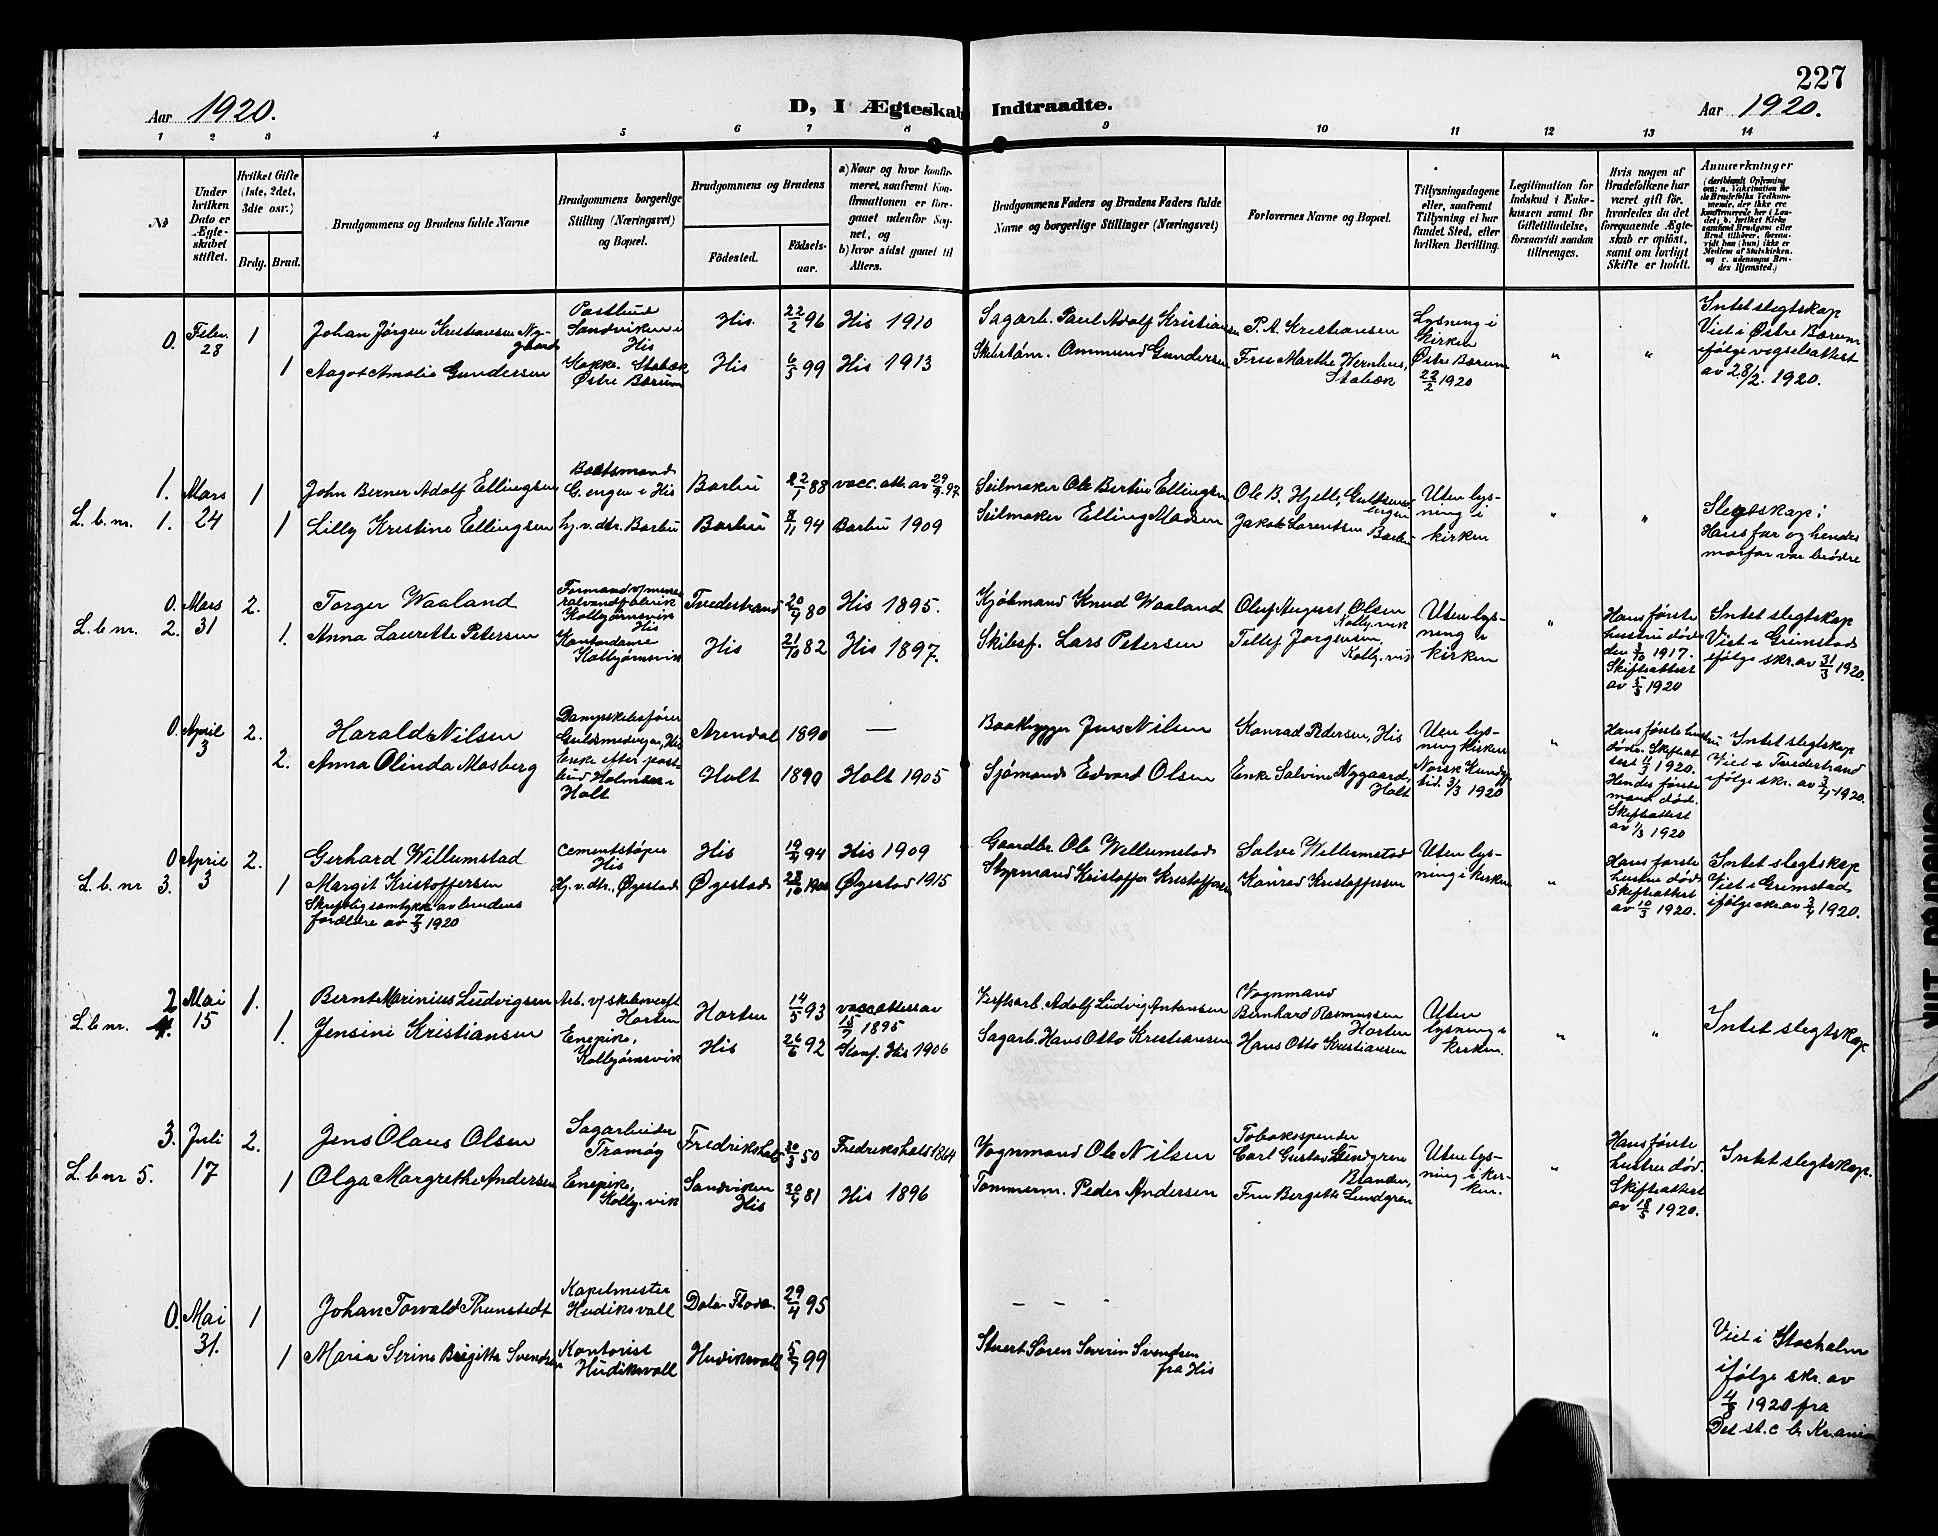 227
Aar 1920.
D, I Ægteskab Indtraadte.
Aar 1920.
1 2 3 4 5 6 7 8 9 10 11 12 13 14
No
Under hvilken Dato er Ægteskabet stiftet.
Hvilket Gifte (1ste, 2det, 3die osv.)
Brdg. Brud.
Brudgommens og Brudens fulde Navne
Brudgommens borgerlige Stilling (Næringsvei) og Bopæl.
Brudgommens og Brudens
Fødested.
Fødselsaar.
a) Naar og hvor konfirmeret, saafremt Konfirmationen er foregaaet udenfor Sognet, og
b) hvor sidst gaaet til Alters.
Brudgommens Faders og Brudens Faders fulde Navne og borgerlige Stillinger (Næringsvei)
Forlovernes Navne og Bopæl.
Tillysningsdagene eller, saafremt Tillysning ei har fundet Sted, efter hvilken Bevilling.
Legitimation for Indskud i Enkekassen samt for Giftetilladelse, forsaavidt saadan tiltrænges.
Hvis nogen af Brudefolkene har været gift før, hvorledes da det foregaaende Ægteskab er opløst, samt om lovligt Skifte er holdt.
Anmærkninger
0. Febr. 28 1
Johan Jørgen Kristiansen
Postbud Sandviken i His
His 22/2 96 His 1910
Sagarb. Paul Adolf Kristiansen
P. A. Kristiansen
Lysning i Kirken Østre Bærum 22/2 1920
" "
Intet slegtskap
Viet i Østre Bærum
ifølge vigselsattest
av 28/2. 1920.
1 Aagot Amalie Gundersen
Kokke. Stabæk Østre Bærum
His 6/5 99 His 1913
Skibstøm. Ommund Gundersen
Fru Marthe Vernhus, Stabæk
1. Mars 24 1
L. b. nr. 1.
John Berner Adolf Ellingsen
Baatsmand
G. engen i His
Barbu 22/1 88 vacc. att. av 29/9 97
Seilmaker Ole Bertin Ellingsen
Ole B. Hjelle, Guldsmedengen
Uten lysning i kirken
" "
Slegtskap:
Hans far og hendes
morfar var brødre
1 Lilly Kristine Ellingsen
hj. v. dtr. Barbu
Barbu 8/11 94 Barbu 1909
Seilmaker Elling Madsen
Jakob Lorentsen Barbu
0. Mars 31 2.
L. b. nr. 2.
Torger Waaland
Formand v/ mineralvandfabrik Kolbjørnsvik His
Tvedestrand 20/4 80 His 1895.
Kjøbmand Knud Waaland
Oluf August Olsen Kolbj. vik
Uten lysning i kirken
"
Hans første hustru død den 3/10 1917. Skifteattest av 5/3 1920
Intet slegtskap
Viet i Grimstad
ifølge skr. av 31/3 1920.
1. Anna Laurette Petersen
Kontordame Kolbjørnsvik
His 21/10 82 His 1897.
Skibsf. Lars Petersen
Tellef Jorgensen, Kolbj. vik
0. April 3 2.
Harald Nilsen
Dampskibsfører Guldsmedvejen, His
Arendal 1890 —
Baatbygger Jens Nilsen
Konrad Pedersen, His
Uten lysning i kirken
Norsk Kundgj. tid. 3/3 1920
"
Hans første hustru døde. Skifteattest 11/3 1920. Hendes første mand død. Skifteattest av 1/3 1920
Intet slegtskap
Viet i Tvedestrand
ifølge skr. av 3/4 1920.
2. Anna Olinda Mosberg
Enke efter postbud Holmsen i Holt
Holt 1890 Holt 1905
Sjømand Edvard Olsen
Enke Salvine Nygaard, Holt
0 April 3 2.
L. b. nr 3.
Gerhard Willumstad
Cementstøper His
His 19/9 94 His 1909
Gaardbr. Ole Willumstad
Salve Willumstad
Uten lysning i kirken
"
Hans første hustru død Skifteattest av 10/3 1920.
Intet slegtskap
Viet i Grimstad
ifølge skr. av 3/4 1920.
1 Margit Kristoffersen
Skriftlig samtykke av brudens
forældre av 7/3 1920
Hj. v. dtr., Øyestad
Øyestad 28/10 1900 Øyestad 1915
Styrmand Kristoffer Kristoffersen
Konrad Kristoffersen
2 Mai 15 1.
L. b. nr. 4.
Bernt Marinius Ludvigsen
Arb. v/ skibsverft Horten
Horten 14/5 93 vaccattest av 15/7 1895
Verftsarb. Adolf Ludvig Antonsen
Vognmand Bernhard Rasmussen Horten
Uten lysning i kirken.
" "
Intet slegtskap
1. Jensine Kristiansen
Enepike, Kolbjørnsvik
His 26/6 92 Konf. His 1906
Sagarb. Hans Otto Kristiansen
Hans Otto Kristiansen
3. Juli 17 2.
L. b. nr 5.
Jens Olaus Olsen
Sagarbeider Tromøy
Fredrikshald 30/3 50 Fredrikshald 1864
Vognmand Ole Nilsen
Tobakspinder Carl Gustav Lundgren Blanden,
Uten lysning i kirken.
"
Hans første hustru død. Skifteattest av 18/5 1920.
Intet slegtskap.
1 Olga Margrethe Andersen
Enepike, Kolbj. vik
Sandviken His 30/4 81 His 1896
Tømmerm. Peder Andersen
Fru Bergitte Lundgren
0. Mai 31. 1
Johan Torvald Thunstedt
Kapelmester Hudiksvall
Dala-Floda. 29/4 95
— — —
1 Maria Serine Brigitta Svendsen
Kontorist Hudiksvall
Hudiksvall 5/7 99
Stuert Søren Severin Svendsen fra His
Viet i Stockholm
ifølge skr. av
4/8 1920 fra
Det st. c. b. Kr.ania